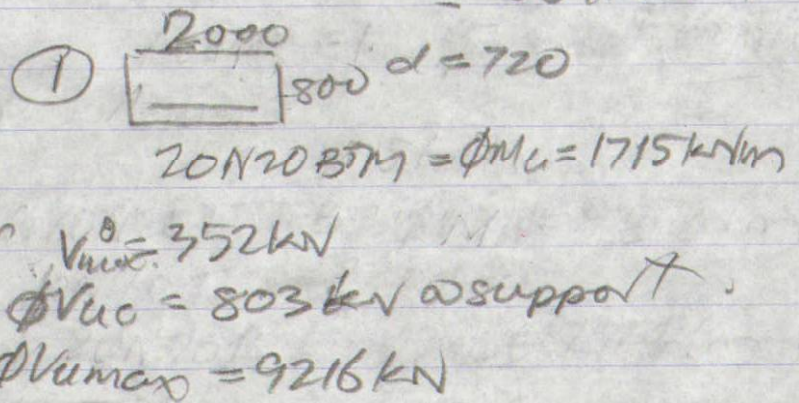 2000
① 800 d = 720
20N20 BTM = ϕMu = 1715 kNm
V*max = 352 kN
ϕVuc = 803 kN @ support.
ϕVumax = 9216 kN